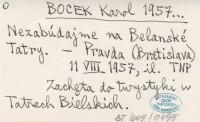 O
BOCEK Karol 1957...
Nezabúdajme na Belanské
Tatry. — Pravda (Bratislava)
11 VIII 1957, il. TNP
Zachęta do turystyki w
Tatrach Bielskich.